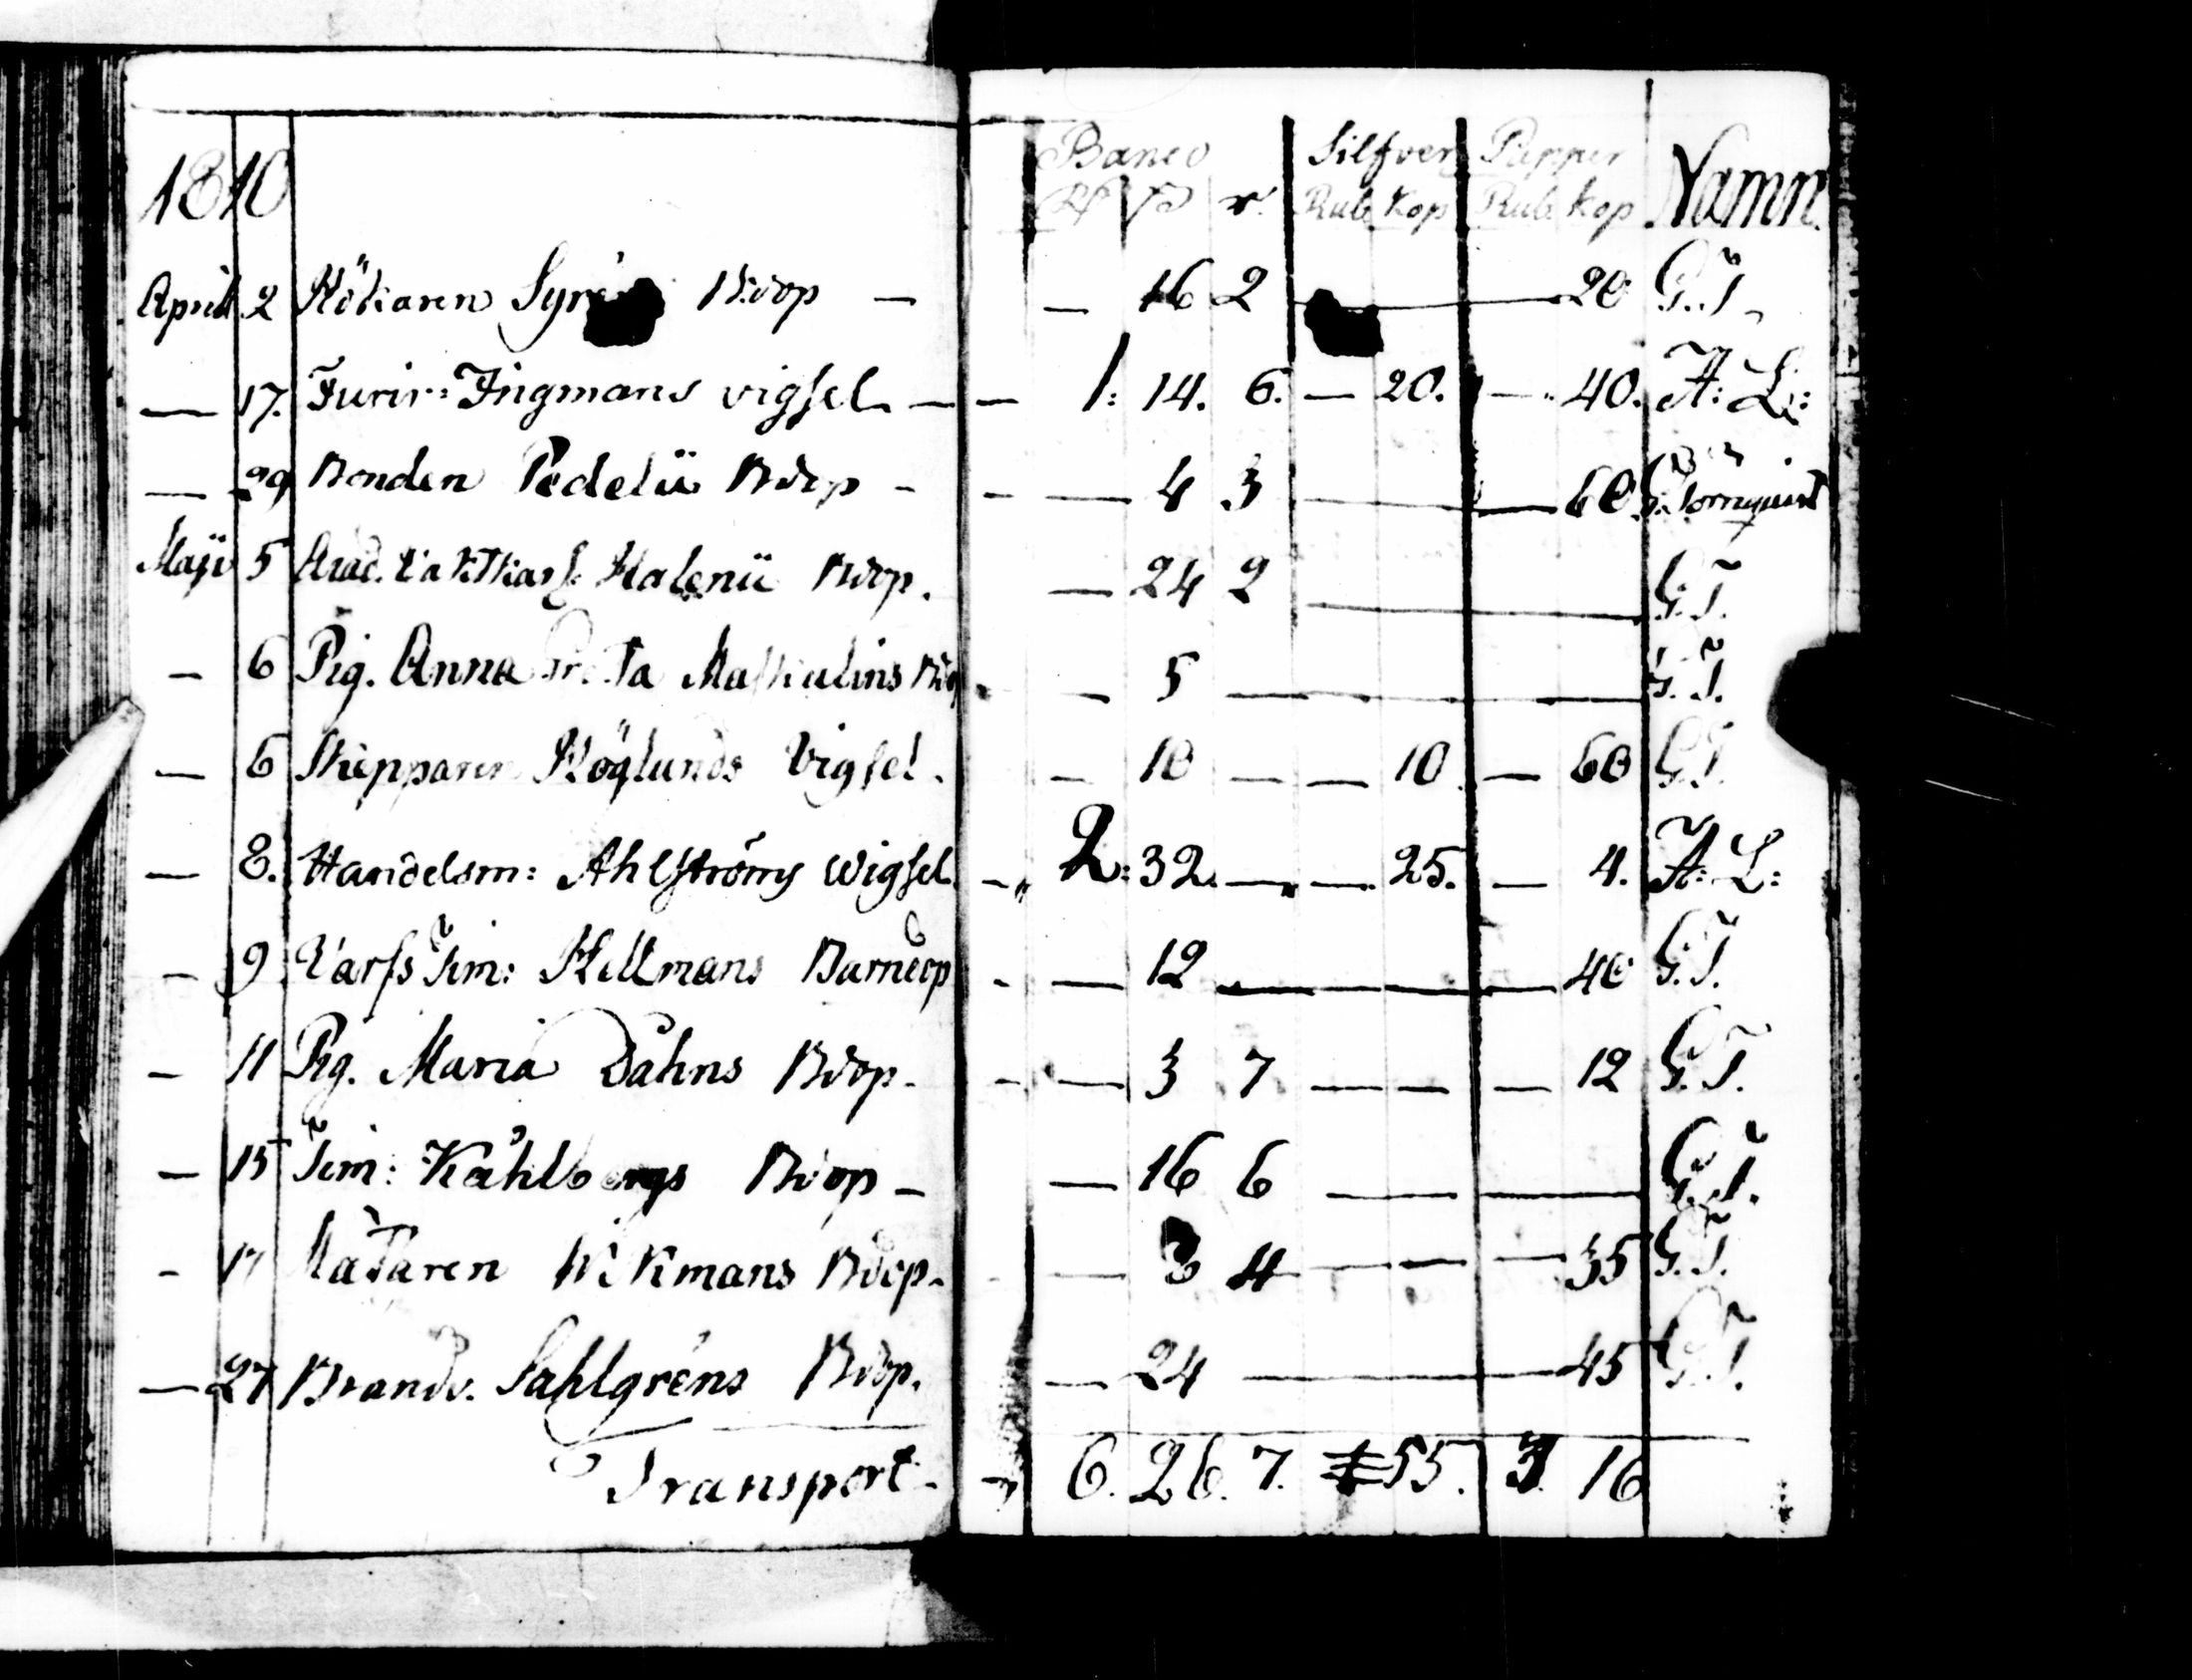 Banco Silfver Papper Namn
1810 Rd ß r. Rub. Kop Rub. Kop
April 2 Hökaren Syréns Bdop — — 16 2 — 20 G.T.
— 17. Furir: Ingmans vigsel. — — 1: 14. 6. — 20. — 40. A: L:
— 29 Bonden Pedelii Bdop - - — 4 3 — — 60 G. Törnquist
Maji 5 Acad. Vaktkarl Halenii Bdop. — 24 2 — G.T.
— 6 Pig. Anna Greta Maskulins Bdop — 5 — G.T.
— 6 Skepparen Höglunds Vigsel. — 10 — — 10 — 60 G.T.
— 8. Handelsm: Ahlströms wigsel. - 2: 32. — — 25. — 4. A: L:
— 9 Varfs Tim: Hellmans Barndop - — 12 — 40 G.T.
- 11 Pig. Maria Dåhns Bdop. - — 3 7 — — — 12 G.T.
— 15 Tim: Kåhlbergs Bdop — — 16 6 — — G.T.
- 17 Mätaren Wikmans Bdop. - — 3 4 — — — 35 G.T.
— 27 Brandv. Sahlgréns Bdop. — 24 — 45 G.T.
Transport - 6. 26. 7. 55. 3 16